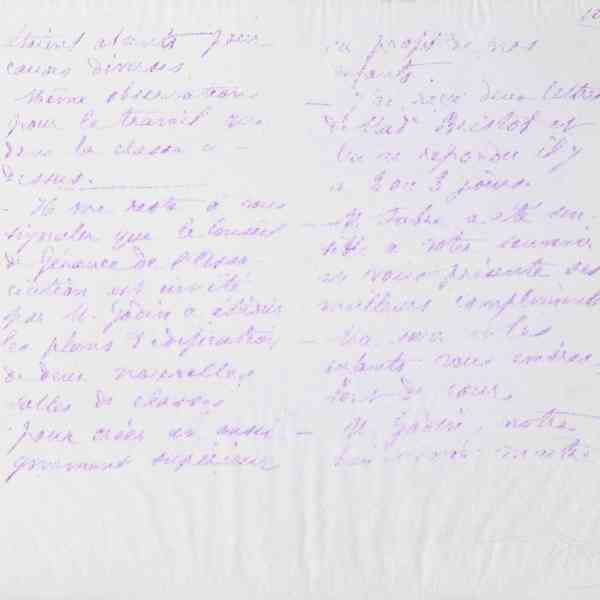 étaient absents pour
causes diverses.
Même observation
pour le travail
dans la classe ci-
dessus.
- Il me reste à vous
signaler que le Conseil
de Gérance de l'Asso-
ciation est invité
par M. Godin à étudier
les plans d'édification
de deux nouvelles
salles de classes
pour créer un ensei-
gnement supérieur
au profit de nos
enfants.
- J'ai reçu deux lettres
de Mad. Bristol et
lui ai répondu il y
a 2 ou 3 jours.
- M. Fabre a été sen-
sible à votre souvenir
et vous présente ses
meilleurs compliments
- Ma sœur et les
enfants vous embras-
sent de cœur.
- M. Godin, notre